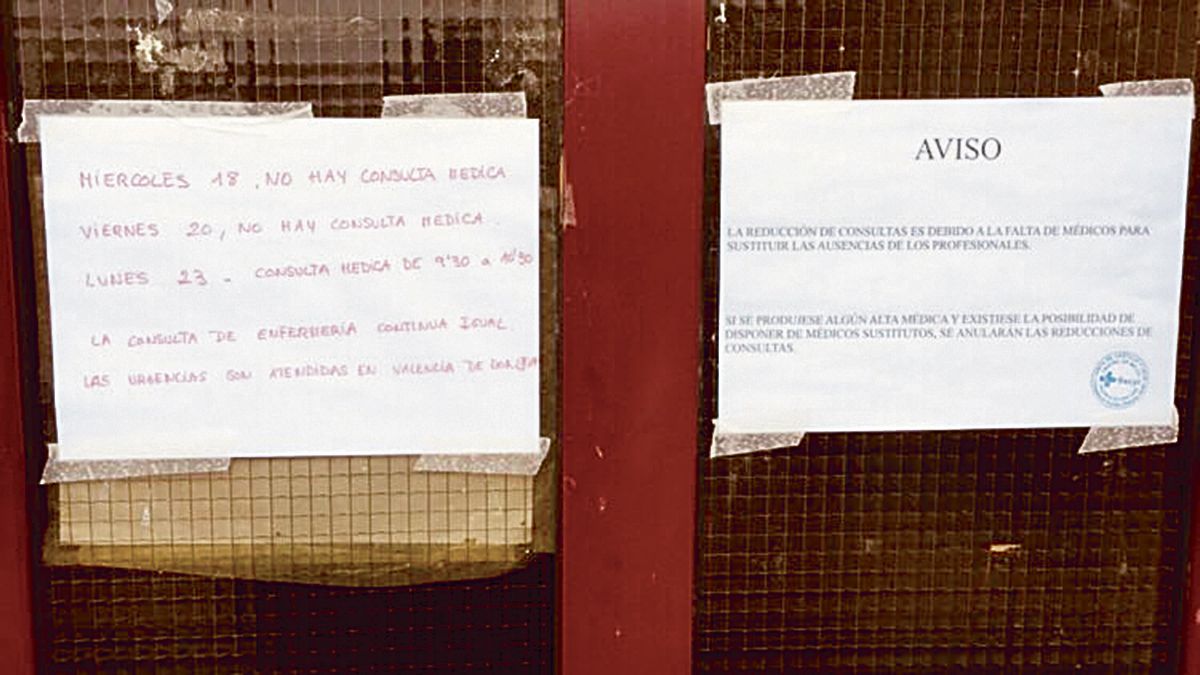 MIERCOLES 18, NO HAY CONSULTA MEDICA
VIERNES 20, NO HAY CONSULTA MEDICA.
LUNES 23 - CONSULTA MEDICA DE 9'30 a 10'30
LA CONSULTA DE ENFERMERÍA CONTINUA IGUAL.
LAS URGENCIAS SON ATENDIDAS EN VALENCIA DE DON JUAN
AVISO
LA REDUCCIÓN DE CONSULTAS ES DEBIDO A LA FALTA DE MÉDICOS PARA
SUSTITUIR LAS AUSENCIAS DE LOS PROFESIONALES.
SI SE PRODUJESE ALGÚN ALTA MÉDICA Y EXISTIESE LA POSIBILIDAD DE
DISPONER DE MÉDICOS SUSTITUTOS, SE ANULARÁN LAS REDUCCIONES DE
CONSULTAS.
Sacyl